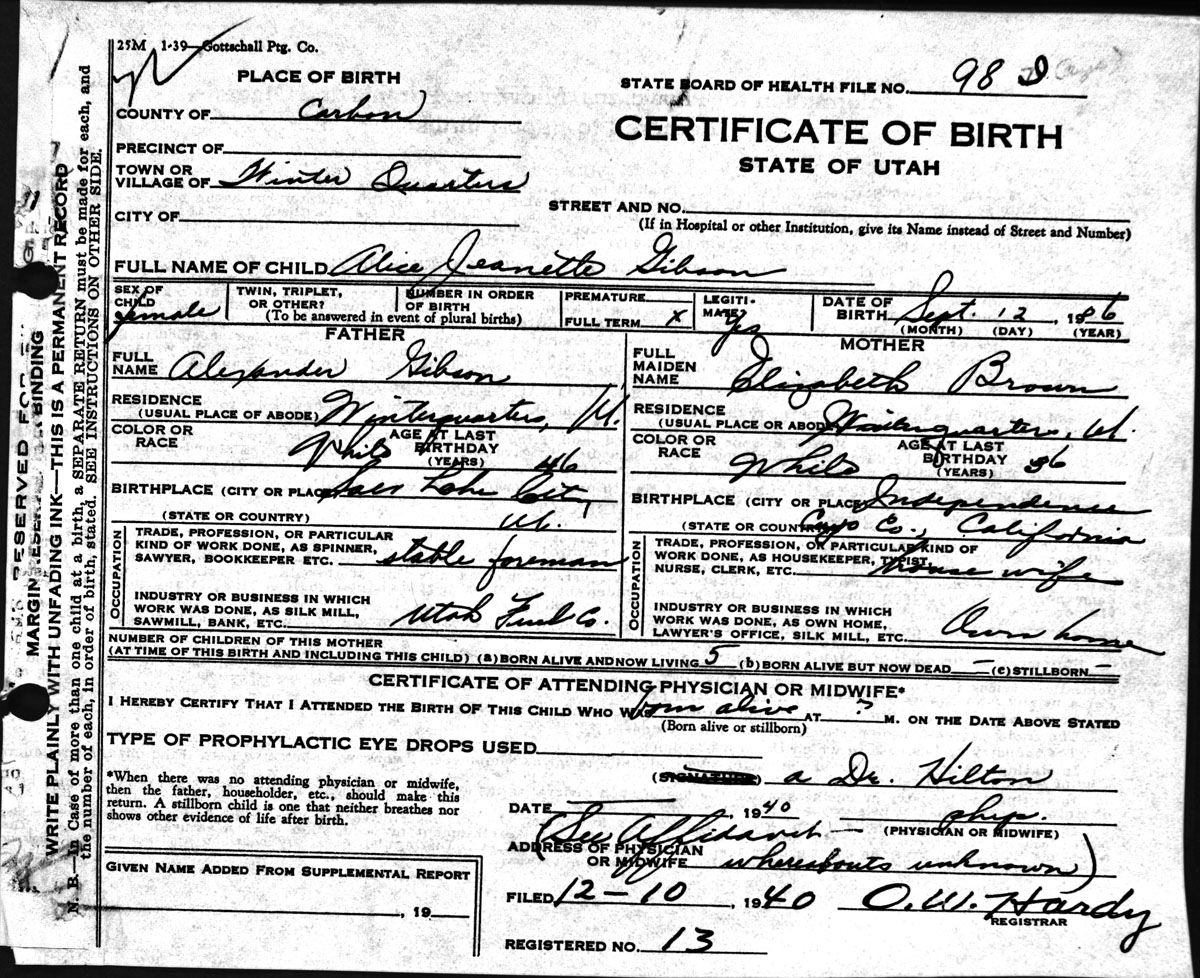 25M 1-39—Gottschall Ptg. Co.
PLACE OF BIRTH
STATE BOARD OF HEALTH FILE NO. 98 D
COUNTY OF Carbon
CERTIFICATE OF BIRTH
PRECINCT OF
STATE OF UTAH
TOWN OR
VILLAGE OF Winter Quarters
STREET AND NO.
CITY OF
(If in Hospital or other Institution, give its Name instead of Street and Number)
FULL NAME OF CHILD Alice Jeanette Gibson
SEX OF CHILD female
TWIN, TRIPLET, OR OTHER?
NUMBER IN ORDER OF BIRTH
(To be answered in event of plural births)
PREMATURE
FULL TERM X
LEGITIMATE? Yes
DATE OF BIRTH Sept. 12, 1986
(MONTH) (DAY) (YEAR)
FATHER
FULL NAME Alexander Gibson
RESIDENCE
(USUAL PLACE OF ABODE) Winterquarters, U.
COLOR OR RACE White
AGE AT LAST BIRTHDAY (YEARS) 46
BIRTHPLACE (CITY OR PLACE) Salt Lake City,
(STATE OR COUNTRY) U.
OCCUPATION
TRADE, PROFESSION, OR PARTICULAR
KIND OF WORK DONE, AS SPINNER,
SAWYER, BOOKKEEPER ETC. stable foreman
INDUSTRY OR BUSINESS IN WHICH
WORK WAS DONE, AS SILK MILL,
SAWMILL, BANK, ETC. Utah Fuel Co.
MOTHER
FULL MAIDEN NAME Elizabeth Brown
RESIDENCE
(USUAL PLACE OF ABODE) Winterquarters, U.
COLOR OR RACE White
AGE AT LAST BIRTHDAY (YEARS) 36
BIRTHPLACE (CITY OR PLACE) Independence
(STATE OR COUNTRY) Inyo Co., California
OCCUPATION
TRADE, PROFESSION, OR PARTICULAR KIND OF
WORK DONE, AS HOUSEKEEPER, TYPIST,
NURSE, CLERK, ETC. house wife
INDUSTRY OR BUSINESS IN WHICH
WORK WAS DONE, AS OWN HOME,
LAWYER'S OFFICE, SILK MILL, ETC. Own home
NUMBER OF CHILDREN OF THIS MOTHER
(AT TIME OF THIS BIRTH AND INCLUDING THIS CHILD) (a) BORN ALIVE AND NOW LIVING 5 (b) BORN ALIVE BUT NOW DEAD — (c) STILLBORN —
CERTIFICATE OF ATTENDING PHYSICIAN OR MIDWIFE*
I HEREBY CERTIFY THAT I ATTENDED THE BIRTH OF THIS CHILD WHO WAS born alive AT ? M. ON THE DATE ABOVE STATED
(Born alive or stillborn)
TYPE OF PROPHYLACTIC EYE DROPS USED
*When there was no attending physician or midwife,
then the father, householder, etc., should make this
return. A stillborn child is one that neither breathes nor
shows other evidence of life after birth.
(SIGNATURE) a Dr. Hilton
DATE 1940 phys.
(PHYSICIAN OR MIDWIFE)
(See Affidavit —
ADDRESS OF PHYSICIAN
OR MIDWIFE whereabouts unknown)
GIVEN NAME ADDED FROM SUPPLEMENTAL REPORT
, 19
FILED 12-10, 1940 O.W. Hardy
REGISTRAR
REGISTERED NO. 13
MARGIN RESERVED FOR BINDING
WRITE PLAINLY WITH UNFADING INK—THIS IS A PERMANENT RECORD
N. B.—In Case of more than one child at a birth, a SEPARATE RETURN must be made for each, and
the number of each, in order of birth, stated. SEE INSTRUCTIONS ON OTHER SIDE.